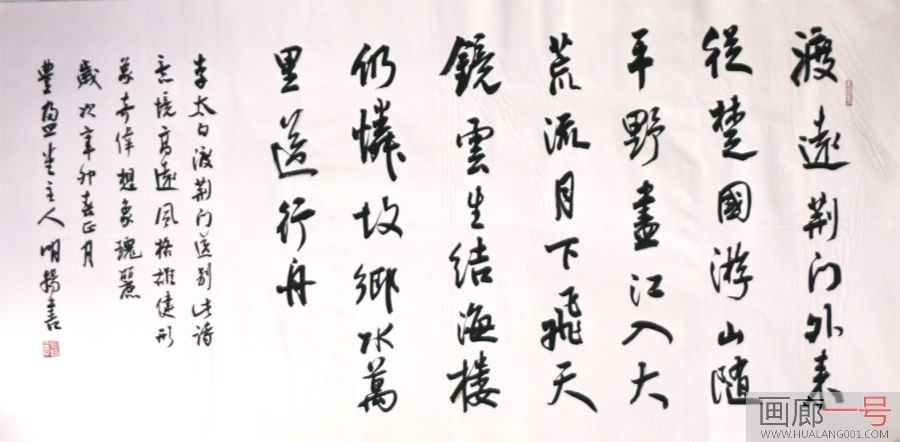 渡遠荆门外来
從楚國游山隨
平野盡江入大
荒流月下飛天
鏡雲生结海楼
仍憐故鄉水萬
里送行舟
李太白渡荆门送别此诗
意境高遠风格雄健形
象奇伟想象瑰麗
歲次辛卯春正月
主人明揚書
画廊一号
WWW.HUALANG001.COM